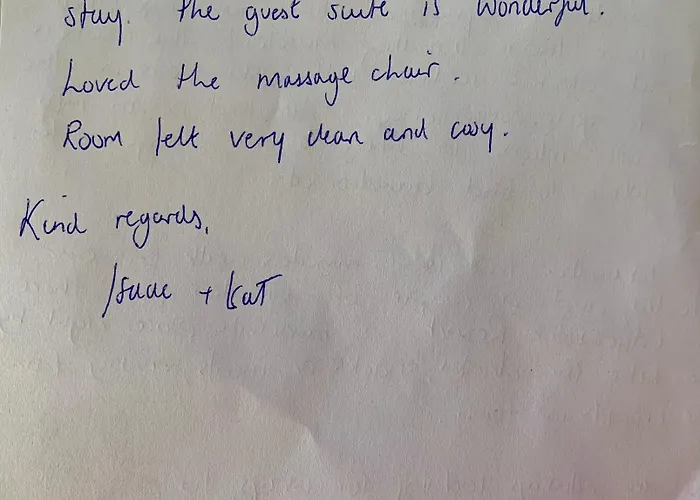 stay. The guest suite is wonderful.
Loved the massage chair.
Room felt very clean and cosy.
Kind regards,
Isaac + Kat